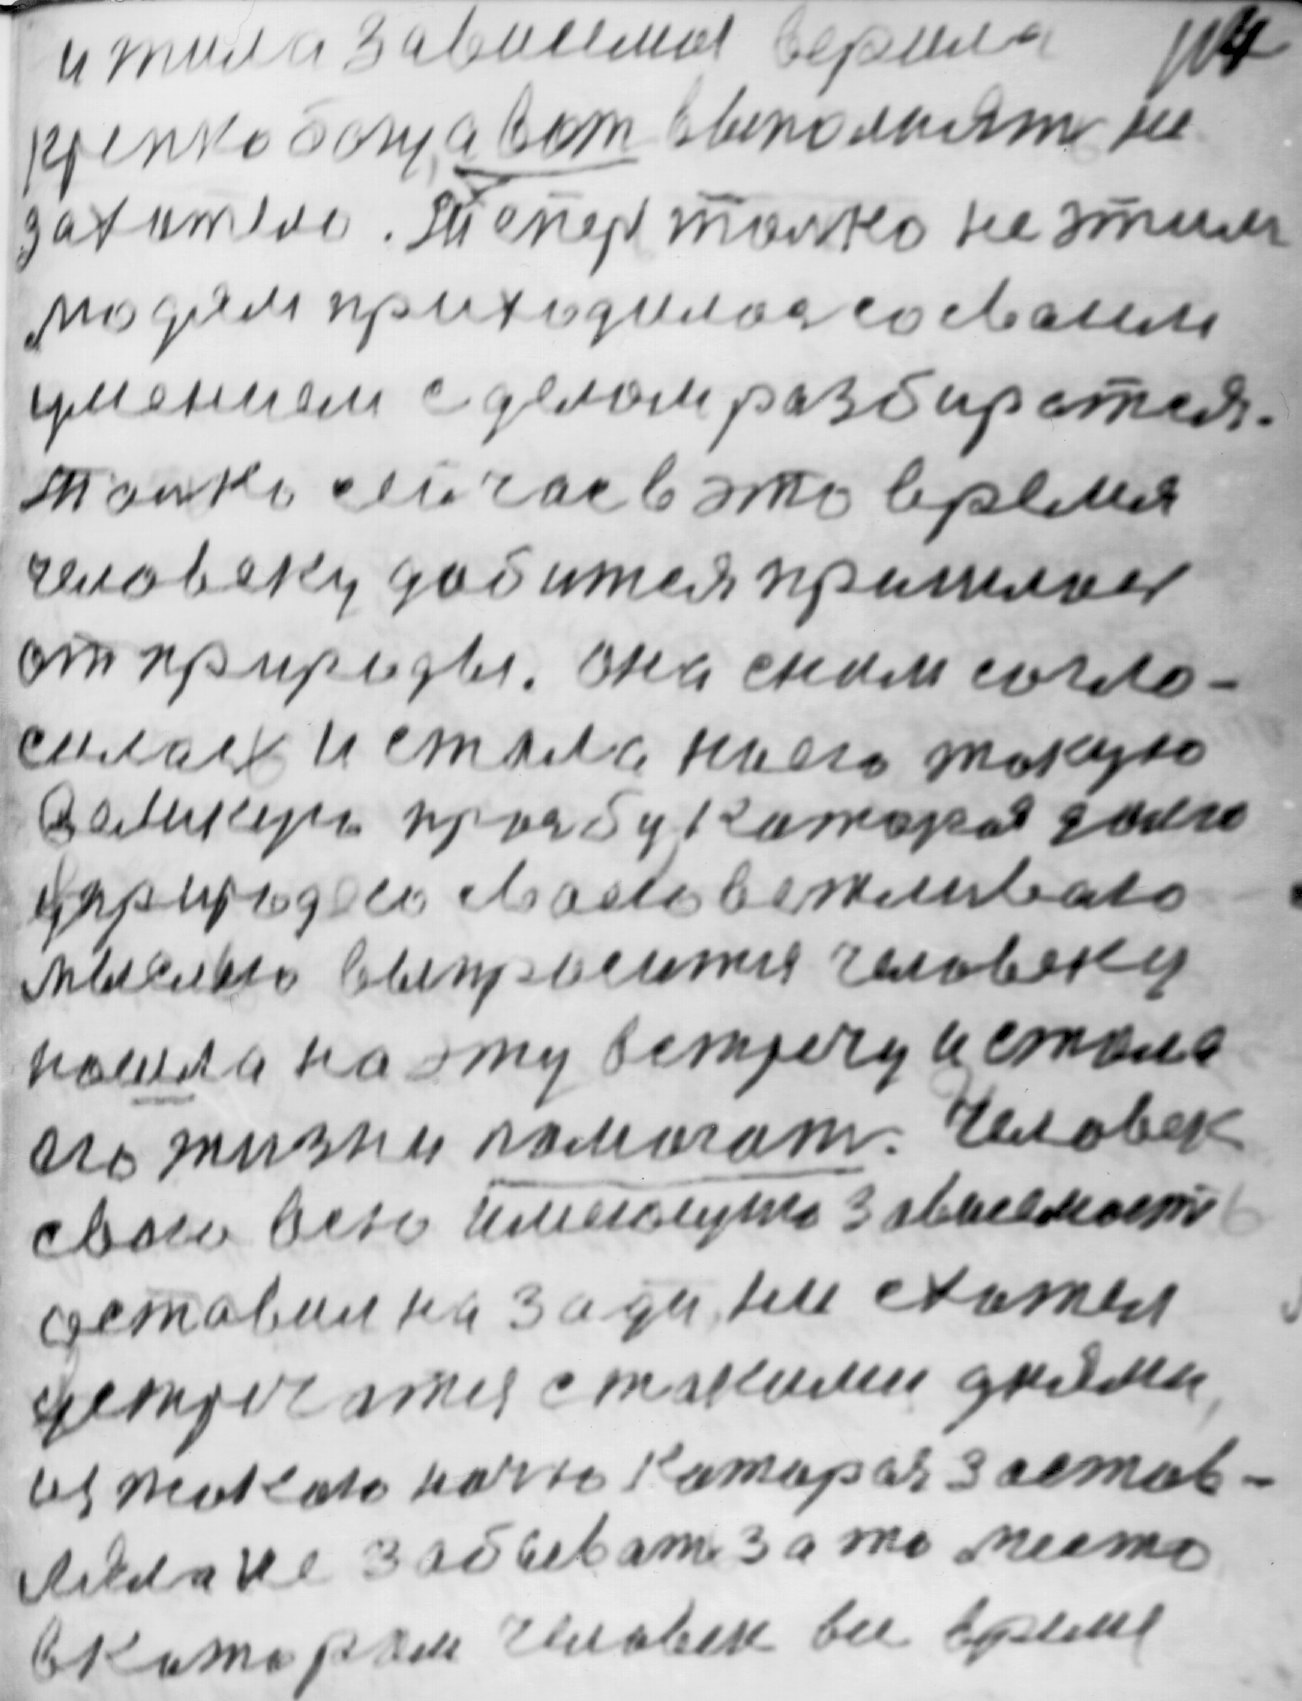 и жила зависимая верила 114
крепко богу, а вот выполнят не
захотела. Тепер толко не этим
людям приходилося со своим
умением с делом разбиратся.
Толко сейчас в это время
человеку добитися пришлося
от природы. она с ним согло-
силася и стала на его такую
великую прозбу которая долго
природою своею вежливаю
мыслью выпроситися человеку
пошла на эту встречу и стала
его жизни помогат. Человек
свою всю имеющую зависемость
оставил на зади, не схотел
устречатися с такими днями,
и с такою ночю которая застав-
ляла не забыват за то место
в котором человек все время